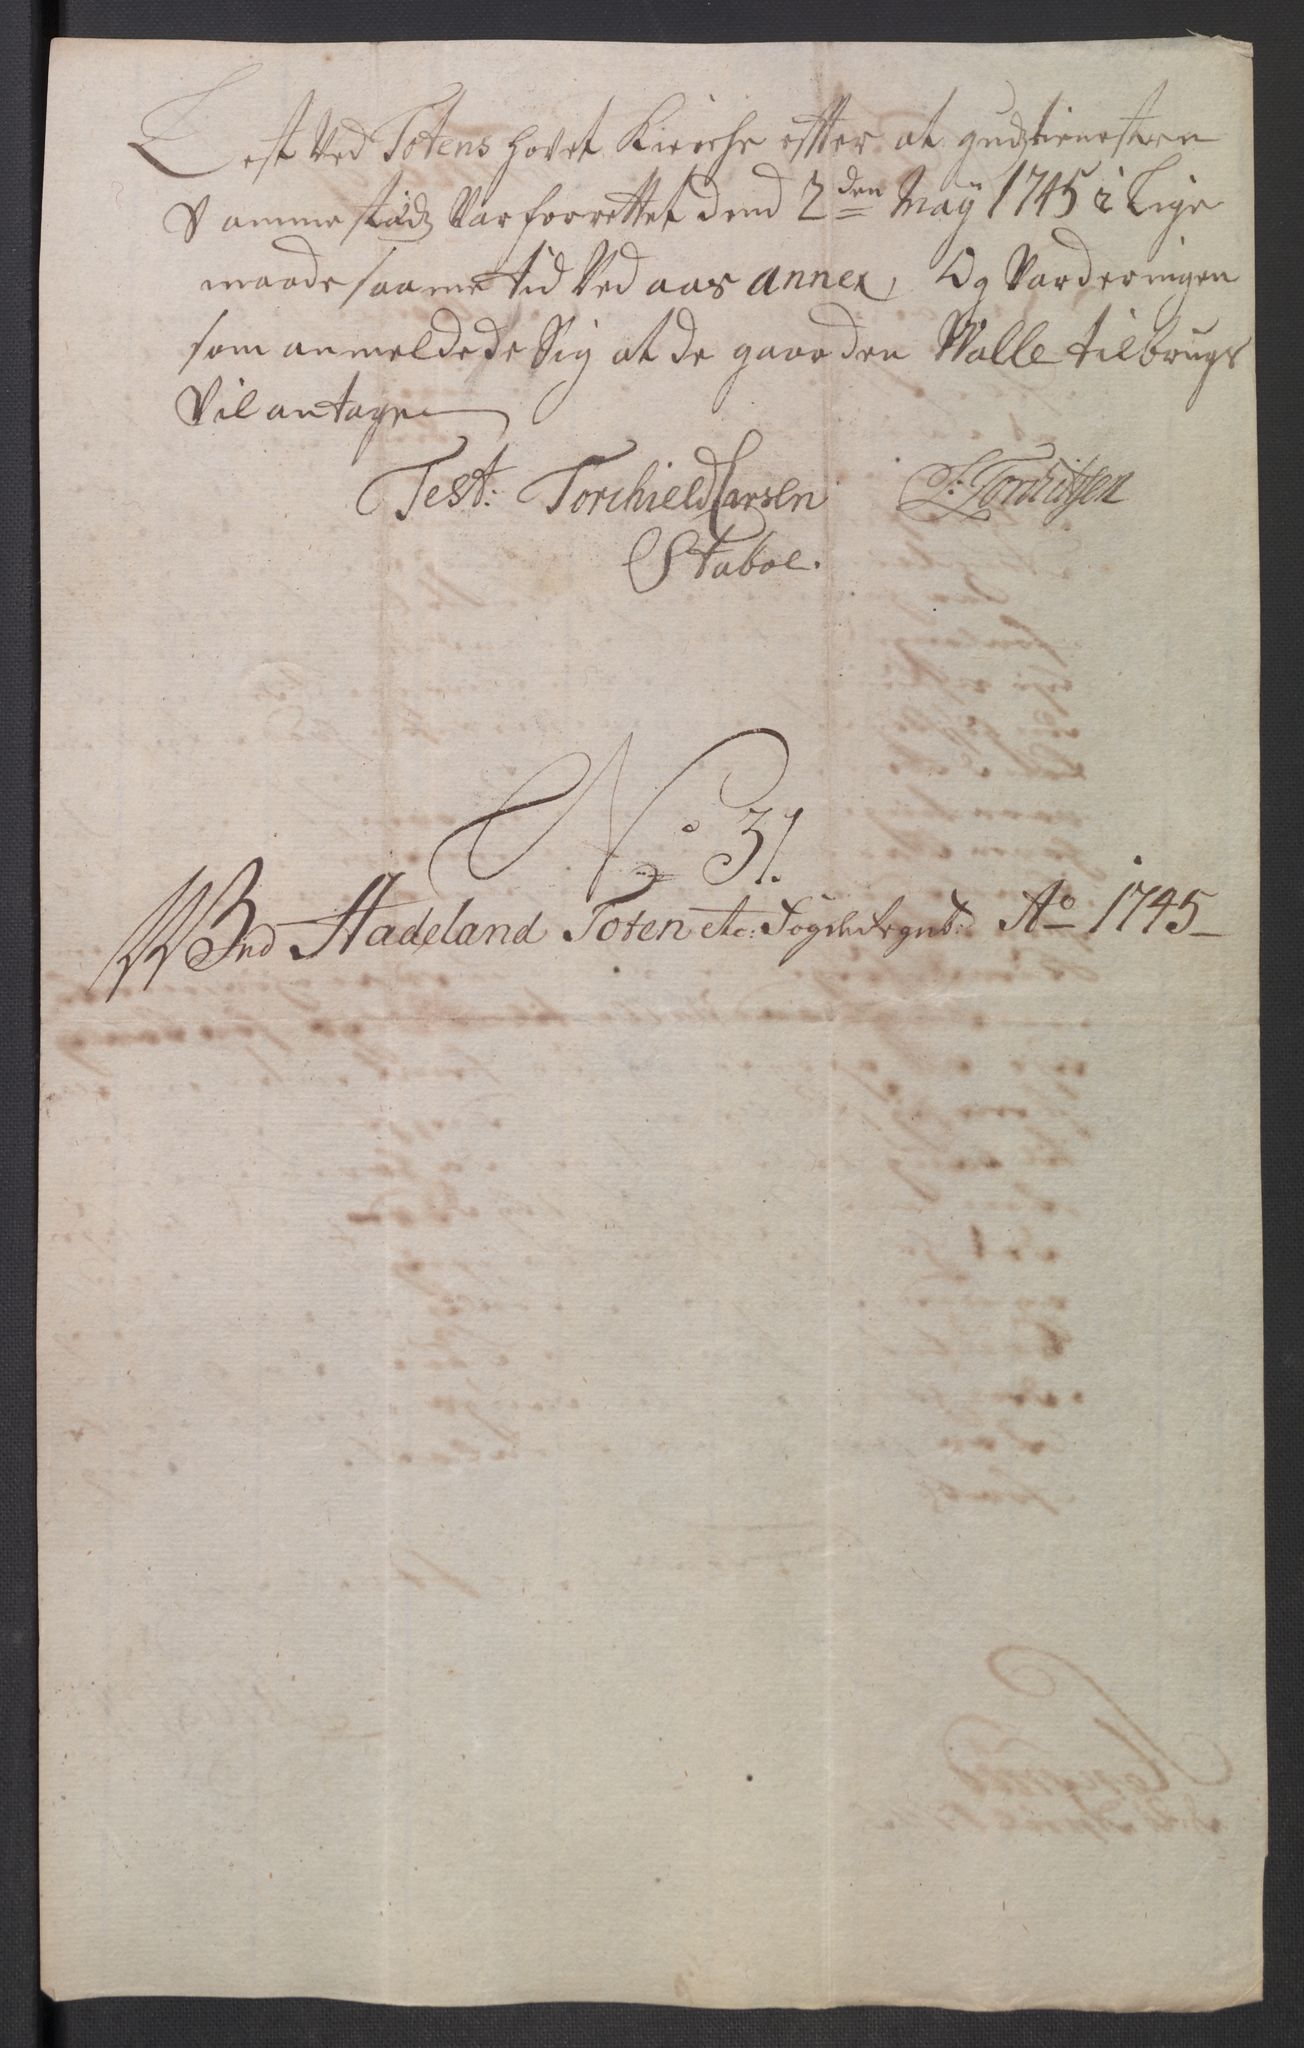 Lest Ved Totens Hovet Kirche effter at gudstienesten
Sammestadz Var forrettet dend 2den Maÿ 1745 i Lige
maade samme tid Ved aas annex, Og Var der ingen
som anmeldede Sig at de gaarden Walle til brugs
Vil antage
Test: Torchield Larsen
Staboe.
No 31.
Vved Hadeland Toten etc: Fogderiegnsk: Ao 1745